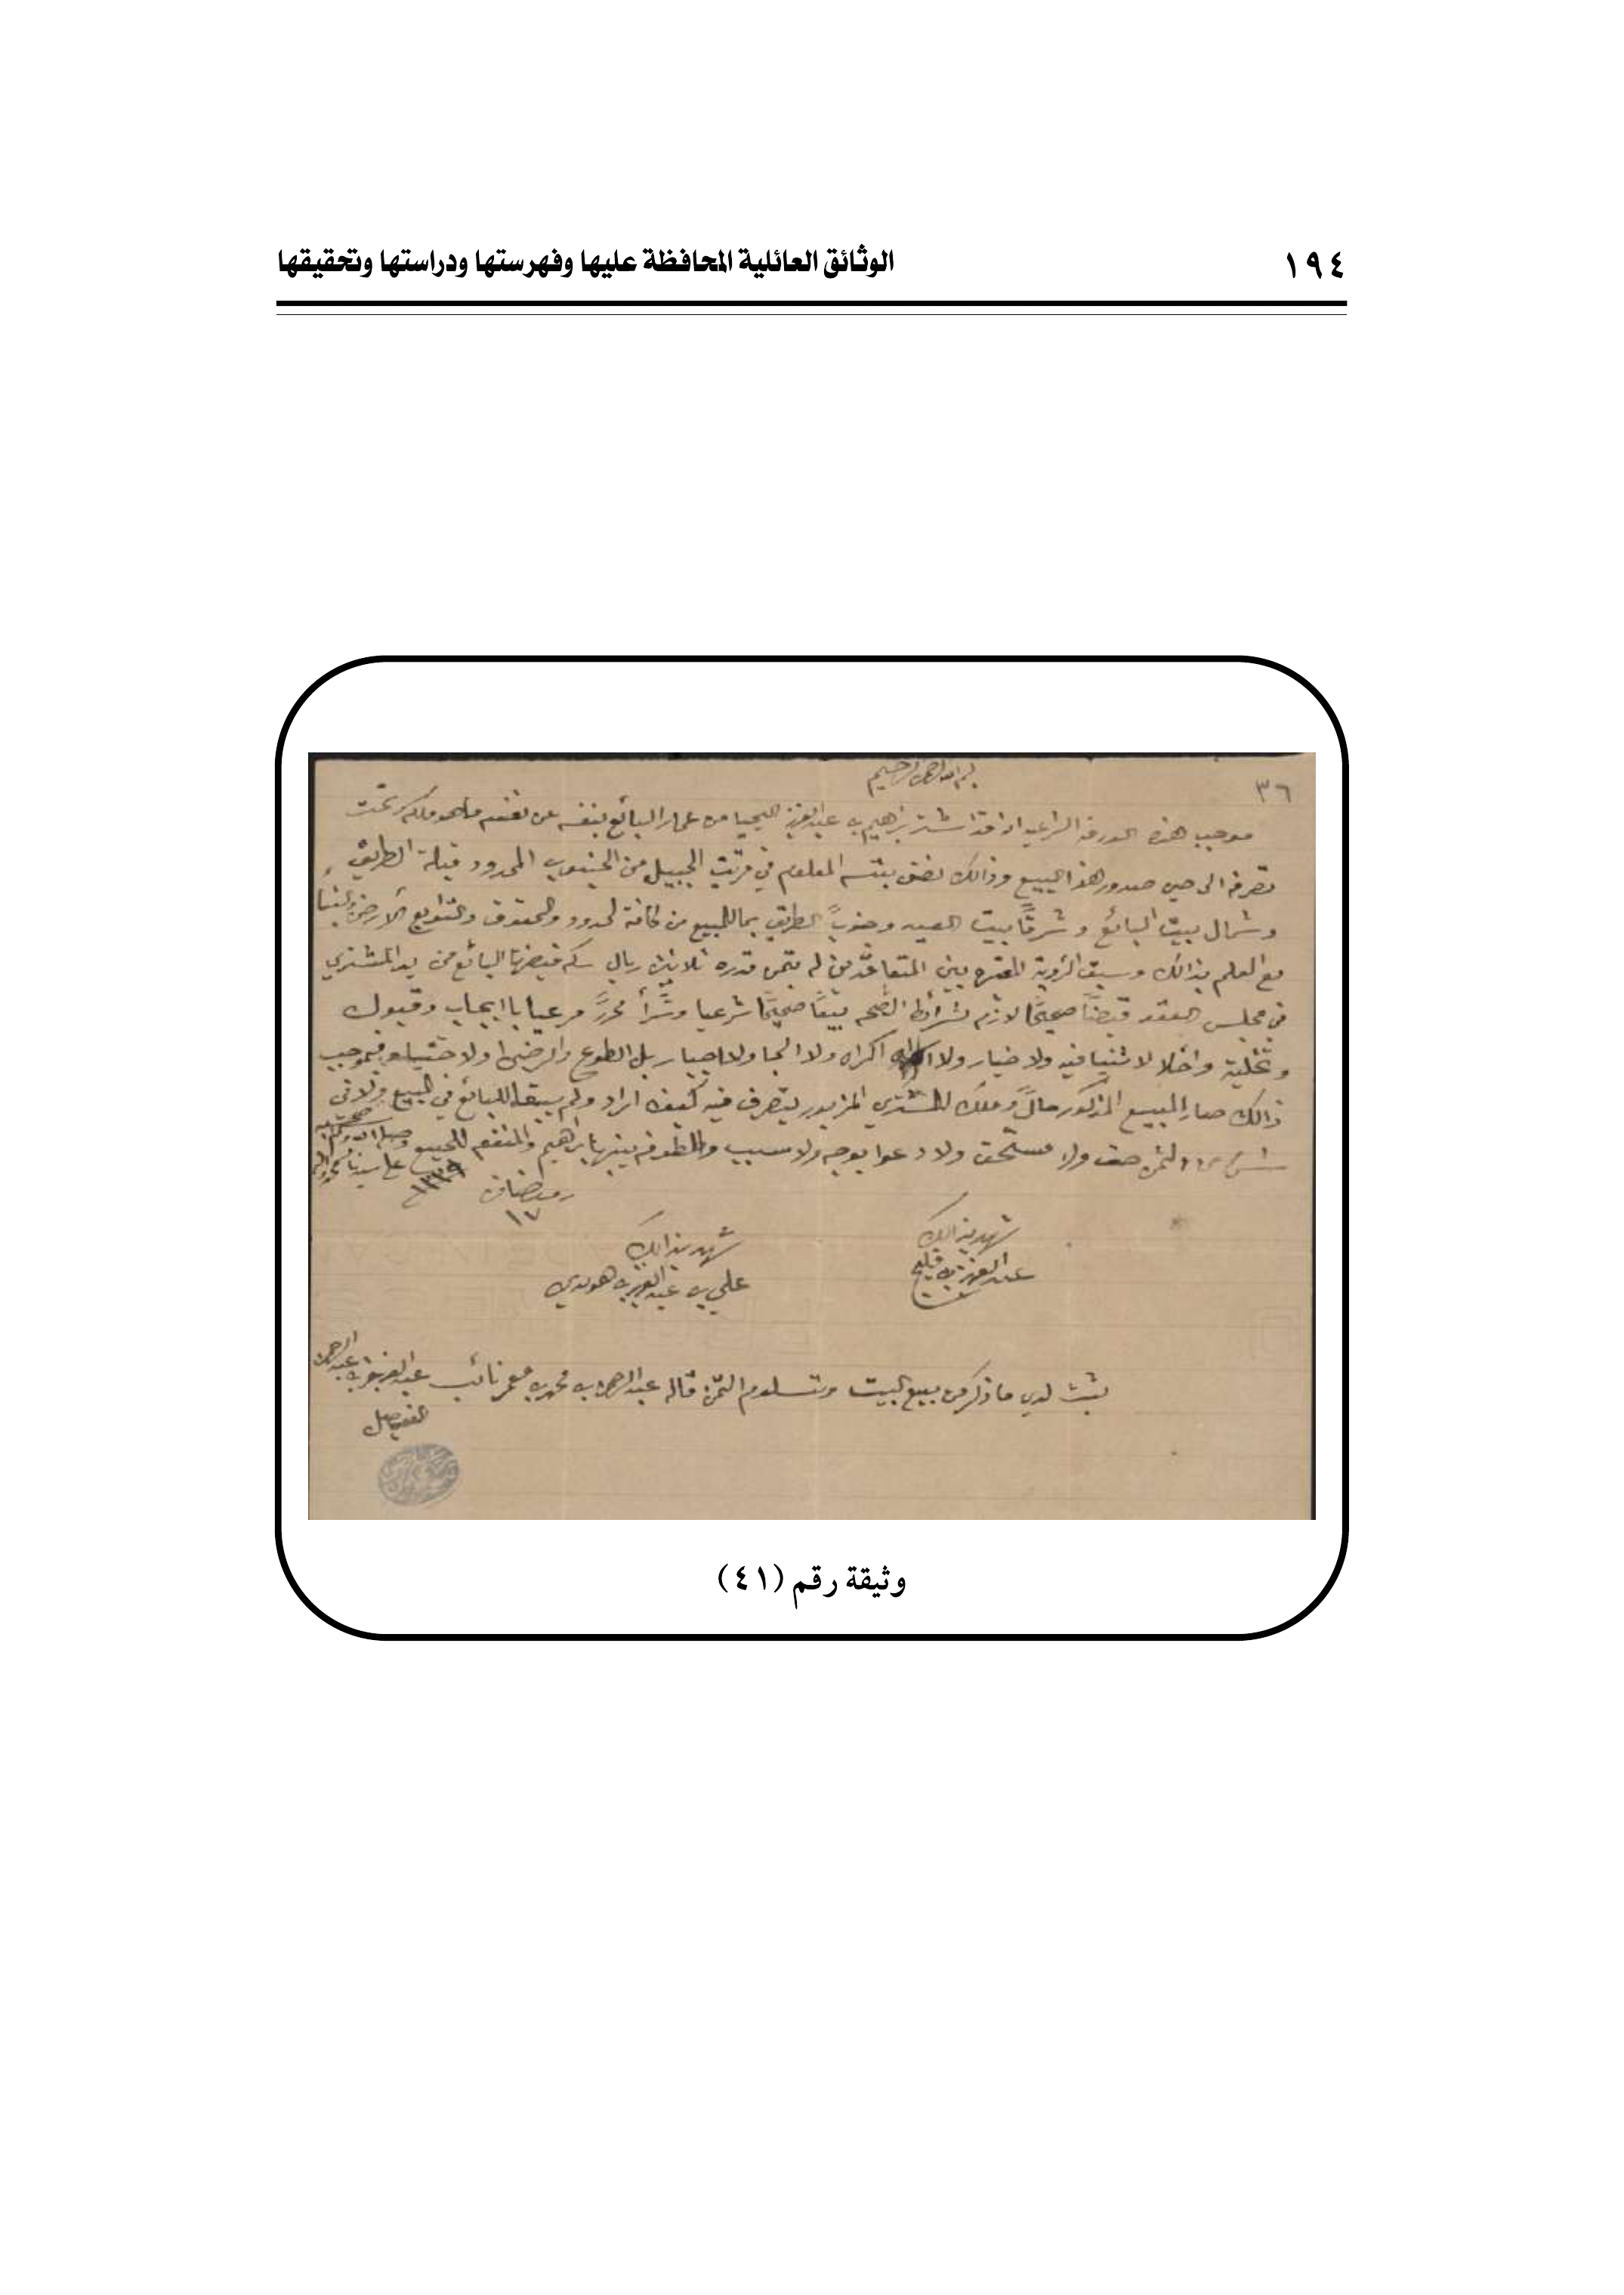 ١٩٤
الوثائق العائلية المحافظة عليها وفهرستها ودراستها وتحقيقها
٣٦
بسم الله الرحمن الرحيم
موجب هذه الورقه الشرعيه انه قد اشتر براهيم بن عبدالعزيز اليحيا من عمار البائع بنفسه عن نفسه ما هو ملكه وتحت
تصرفه الى حين صدور هذا البيع وذالك نصف بيته المعلوم في قريت الجبيل من الجنبوب المحدود قبلة الطريق
وشمال بيت البائع وشرقاً بيت العيد وجنوباً الطريق بما للمبيع من كافة الحدود والحقوق والتوابع الأرض والبنأ
مع العلم بذالك وسبق الرؤية بين المتعاقدين له بثمن قدره ثلاثين ريال قبضها البائع من يد المشتري
في مجلس العقد قبضاً صحيحاً لازم بشرائط الصحه بيعاً صحيحاً شرعيا وشرأ محرراً مرعيا باايجاب وقبول
وتخلية واخلا لا ثنيا فيه ولا خيار ولا اكراه ولا الجا ولا اجبار بل الطوع والرضى
ذالك صار المبيع المذكور مالاً وملك للمشتري المزبور يتصرف فيه كيف اراد ولم يبقا للبائع في المبيع ولا في
الثمن حق ولا مستحق ولا دعوا بوجه ولا سبب بينها براهيم
وصلى الله
على سيدنا محمد
رمضان
١٧
١٣٣٩
شهد بذالك
عبدالعزيز بن
شهد بذالك
علي بن عبدالعزيز هويدي
ثبت لدي ما ذكر من بيع البيت وتسلوم الثمن قاله عبدالرحمن بن محمد بن معمر نائب عبدالعزيز بن عبدالرحمن
الفيصل
وثيقة رقم (٤١)